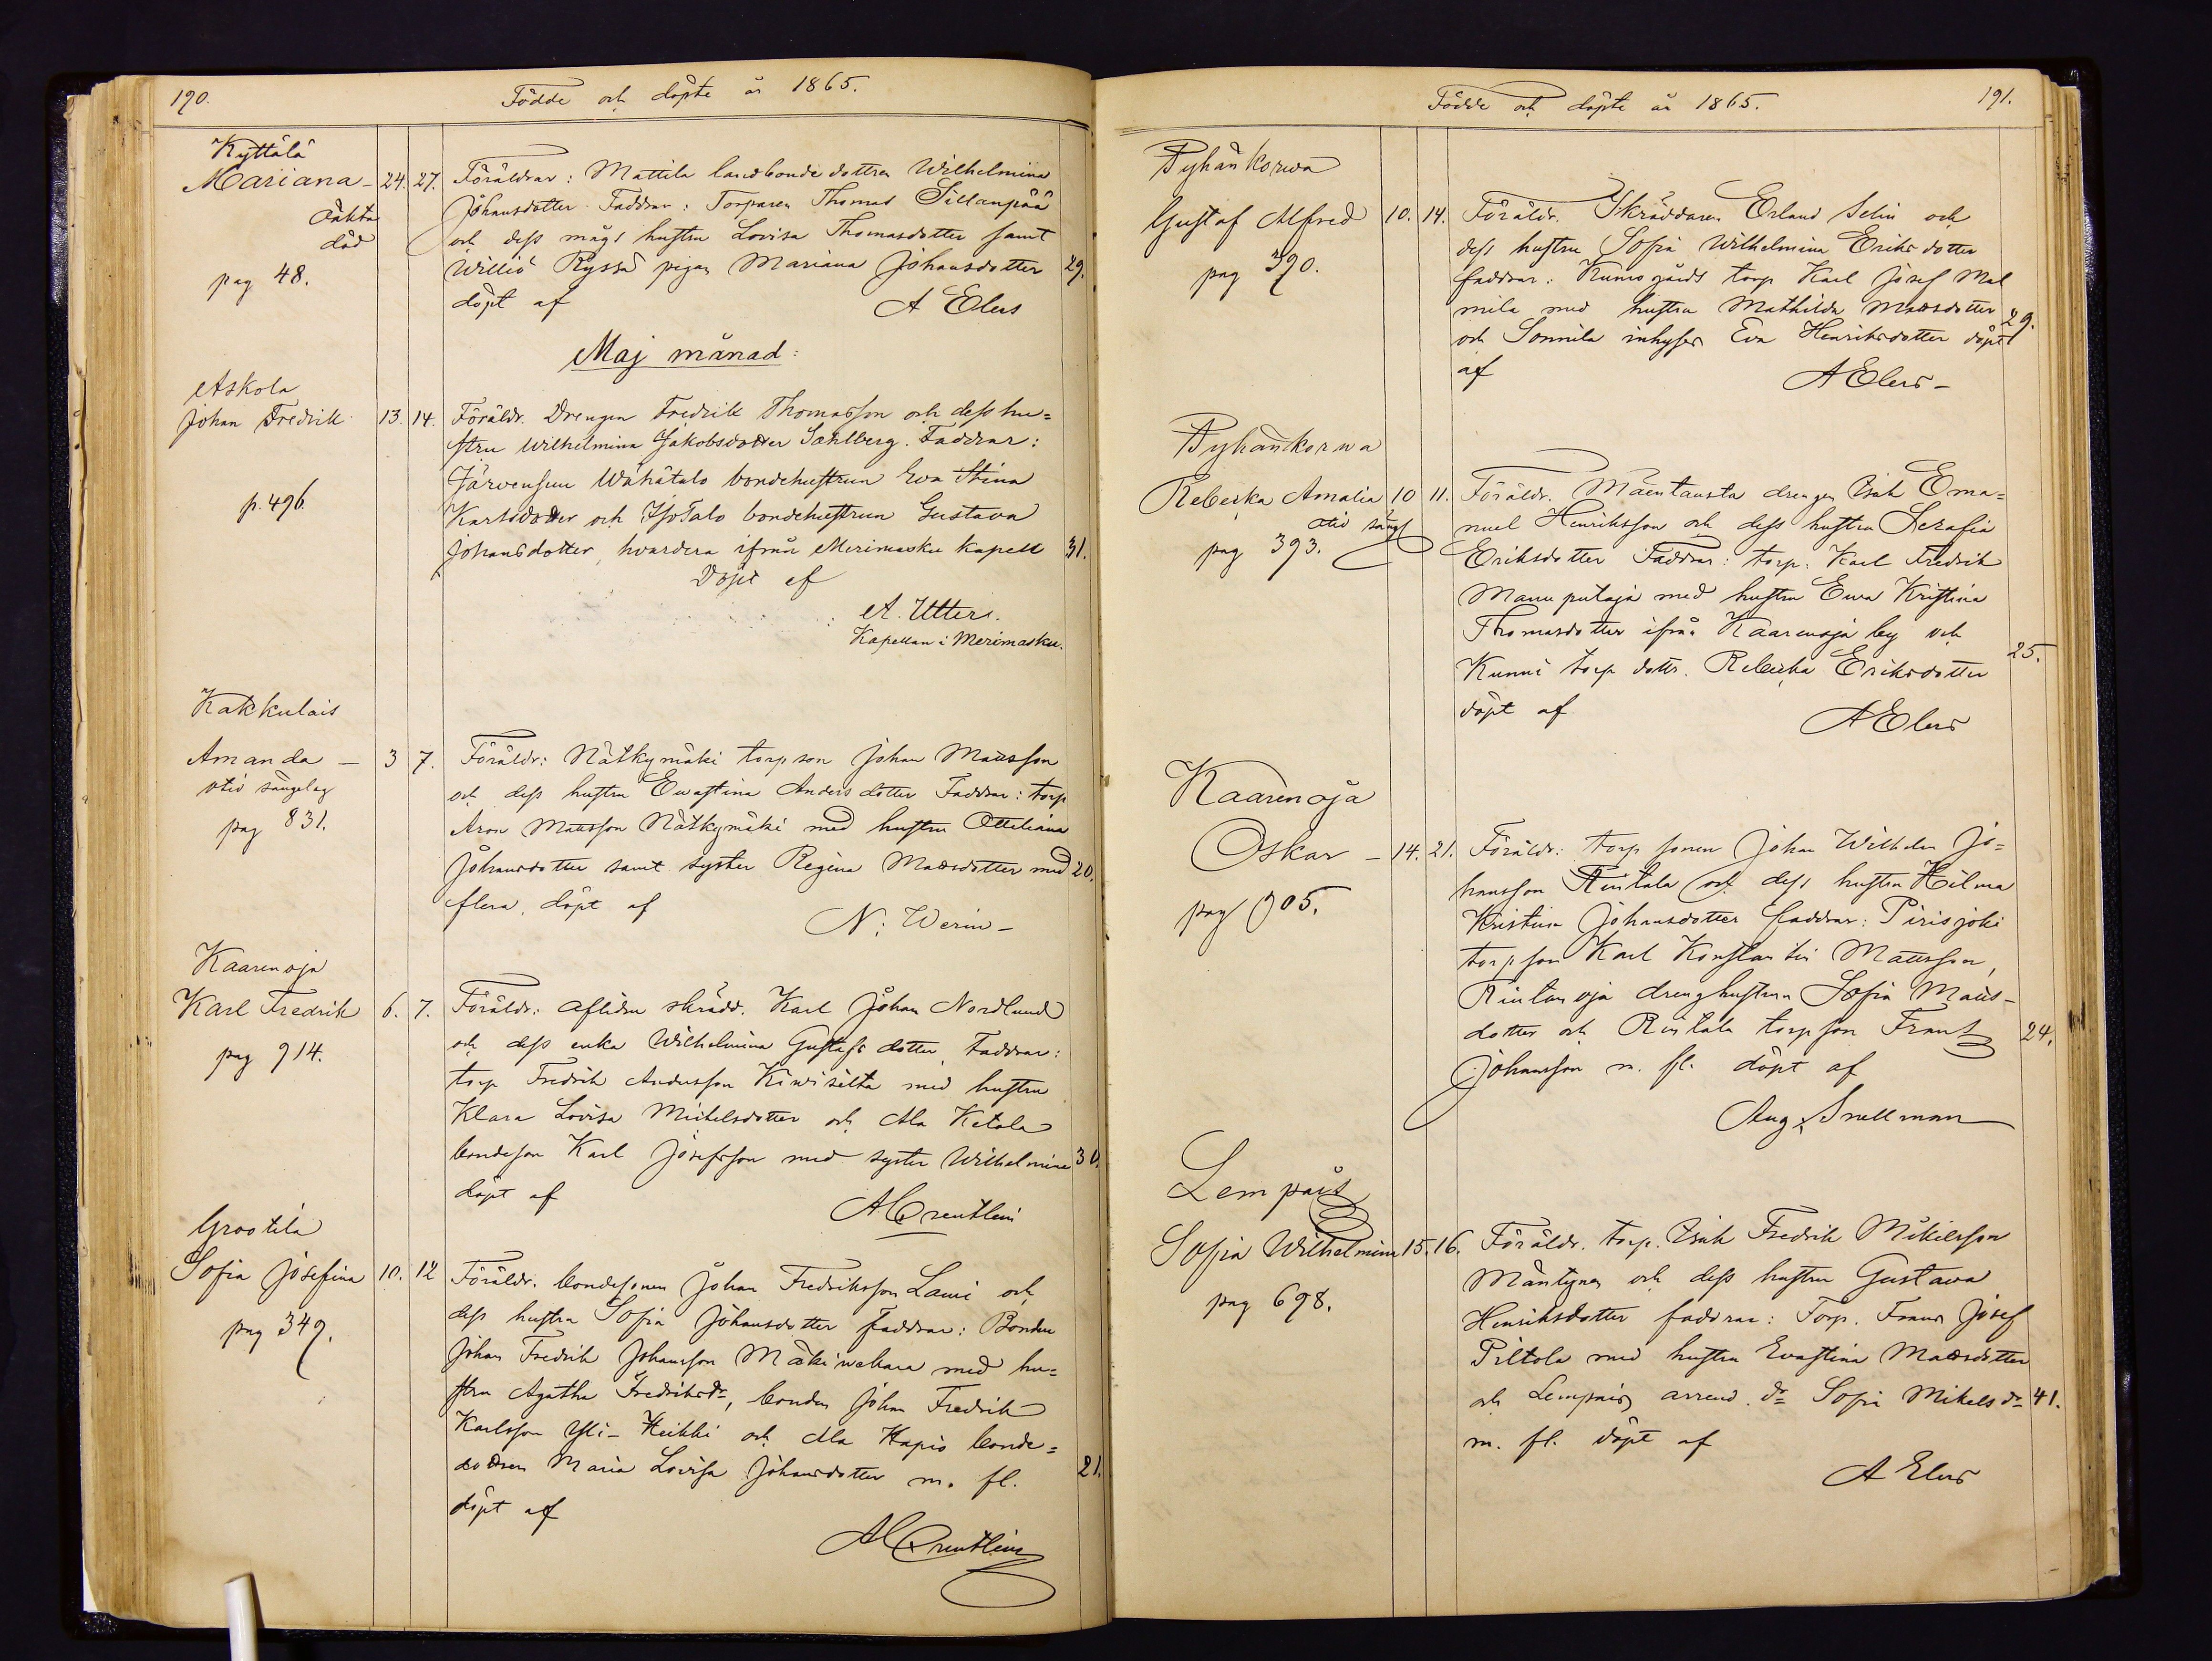 190.
Födde och döpte år 1865.
Kyttälä
Mariana - 24. 27. Föräldrar: Mattila landbonde dottren Wilhelmina
oäkta
död
Johansdotter. Faddrar: Torparen Thomas Sillanpää
och dess mågs hustru Lovisa Thomasdotter samt
pag 48.
Williö Ryssä pigan Mariana Johansdotter 29.
döpt af A Elers
Maj månad:
Askola
Johan Fredrik 13. 14. Föräldr. Drengen Fredrik Thomasson och dess hu=
stru Wilhelmina Jakobsdotter Sahlberg. Faddrar:
Järvensuu Wähätalo bondehustrun Eva Stina
p. 496.
Karlsdotter och IsoTalo bondehustrun Gustava
Johansdotter, hvardera ifrån Merimasku kapell 31.
Döpt af
A. Utter.
Kapellan i Merimasku.
Kakkulais
Amanda - 3 7. Föräldr: Nätkymäki torpson Johan Mattsson
otid sängelag
och dess hustru Evastina Andersdotter Faddrar: torp
pag 831.
Aron Mattsson Nätkymäki med hustru Ottiliana
Johansdotter samt syster Regina Mattsdotter med 20.
flera, döpt af
N: Werin-
Kaarenoja
Karl Fredrik 6. 7. Föräldr: aflidne skrädd. Karl Johan Nordlund
och dess enka Wilhelmina Gustafsdotter, Faddrar:
pag 914.
torp Fredrik Andersson Kiwisilta med hustru
Klara Lovisa Mickelsdotter och Ala Ketola
bondeson Karl Josefsson med syster Wilhelmina 30.
döpt af
Grootila
Sofia Josefina 10. 12 Föräldr. bondesonen Johan Fredriksson Lawi och
dess hustru Sofia Johansdotter faddrar: Bonden
pag 349.
Johan Fredrik Johansson Mäkiwahara med hu=
stru Agatha Fredriksdr, bonden Johan Fredrik
Karlsson Yli-Heikki och Ala Hapio bonde=
dottren Maria Lovisa Johansdotter m. fl. 21.
döpt af
Födde och döpte år 1865.
191.
Pyhänkorwa
Gustaf Alfred 10. 14. Föräldr. Skräddaren Erland Selin och
dess hustru Sofia Wilhelmina Eriksdotter
pag 390.
faddrar: Kumogårds torp Karl Josef Mal
mila med hustru Mathilda Mattsdotter 29.
och Sonnila inhyses Eva Henriksdotter döpt
af
A Elers-
Pyhänkorwa
Rebecka Amalia 10 11. Föräldr. Mäentausta drengen Isak Ema=
otid sängl
nuel Henriksson och dess hustru Serafia
pag 393.
Eriksdotter Faddrar: torp. Karl Fredrik
Manuputaja med hustru Ewa Kristina
Thomasdotter ifrån Kaarenoja by och
25.
Kunni torp dottr. Rebecka Eriksdotter
döpt af
A Elers
Kaarenoja
Oskar - 14. 21. Föräldr: torp sonen Johan Wilhelm Jo=
hansson Rintala och dess hustru Hilma
pag 905.
Kristina Johansdotter faddrar: Pirisjoki
torpson Karl Konstantin Mattsson,
Rintanoja drenghustrun Sofia Matts-
dotter och Rintala torpson Frans 24.
Johansson m. fl. döpt af
Aug. Snellman
Lempäis
Sofia Wilhelmina 15. 16. Föräldr. torp. Isak Fredrik Mikilsson
Mäntynen och dess hustru Gustava
pag 698.
Henriksdotter faddrar: Torp. Frans Josef
Piltola med hustru Evastina Mattsdotter
och Lempäis arrend. dr Sofia Mikels dr 41.
m. fl. döpt af
A Elers